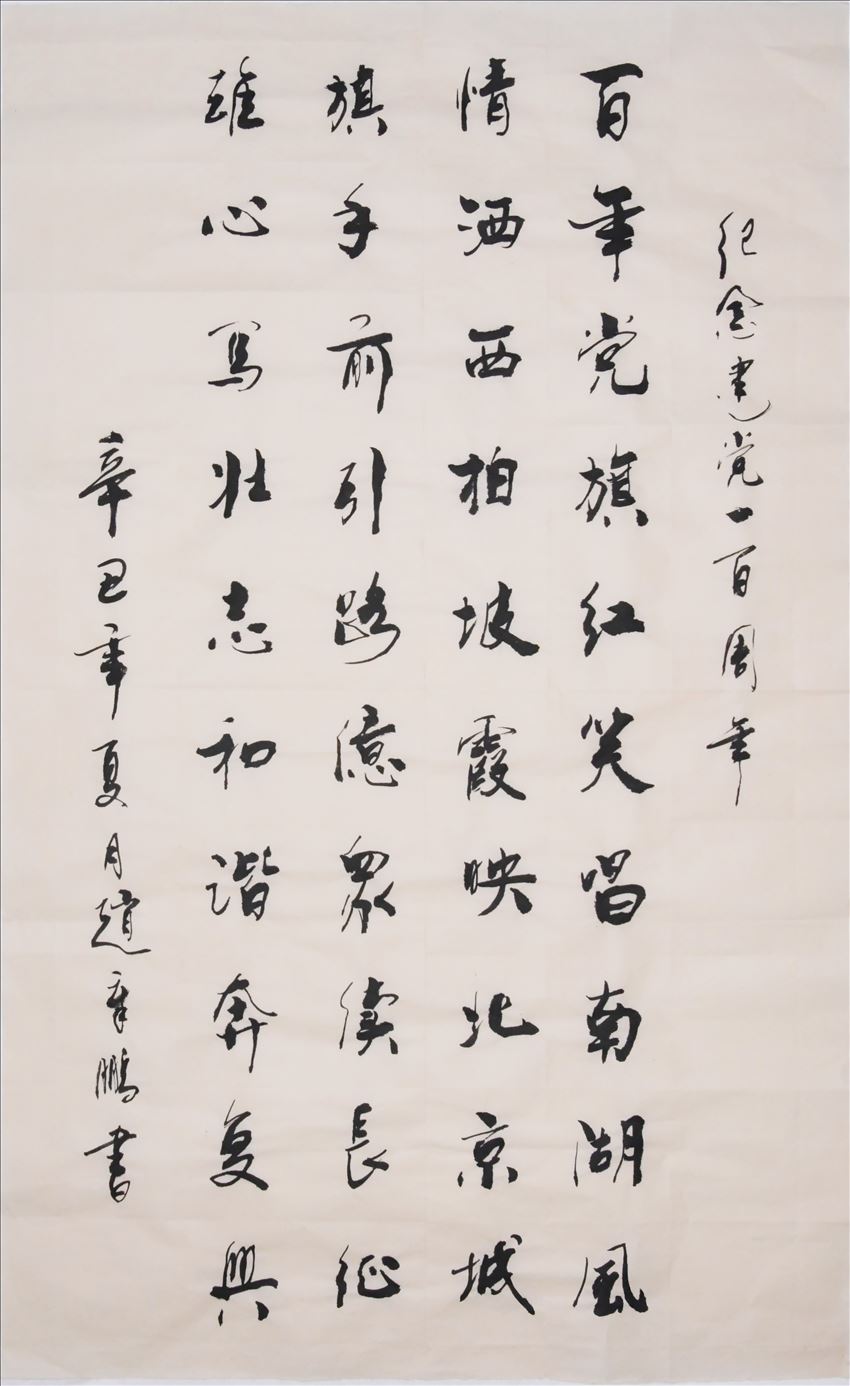 纪念建党一百周年
百年党旗红笑唱南湖風
情洒西柏坡霞映北京城
旗手前引路億眾續長征
雄心写壮志和谐奔复興
辛丑年夏月趙章鵬書